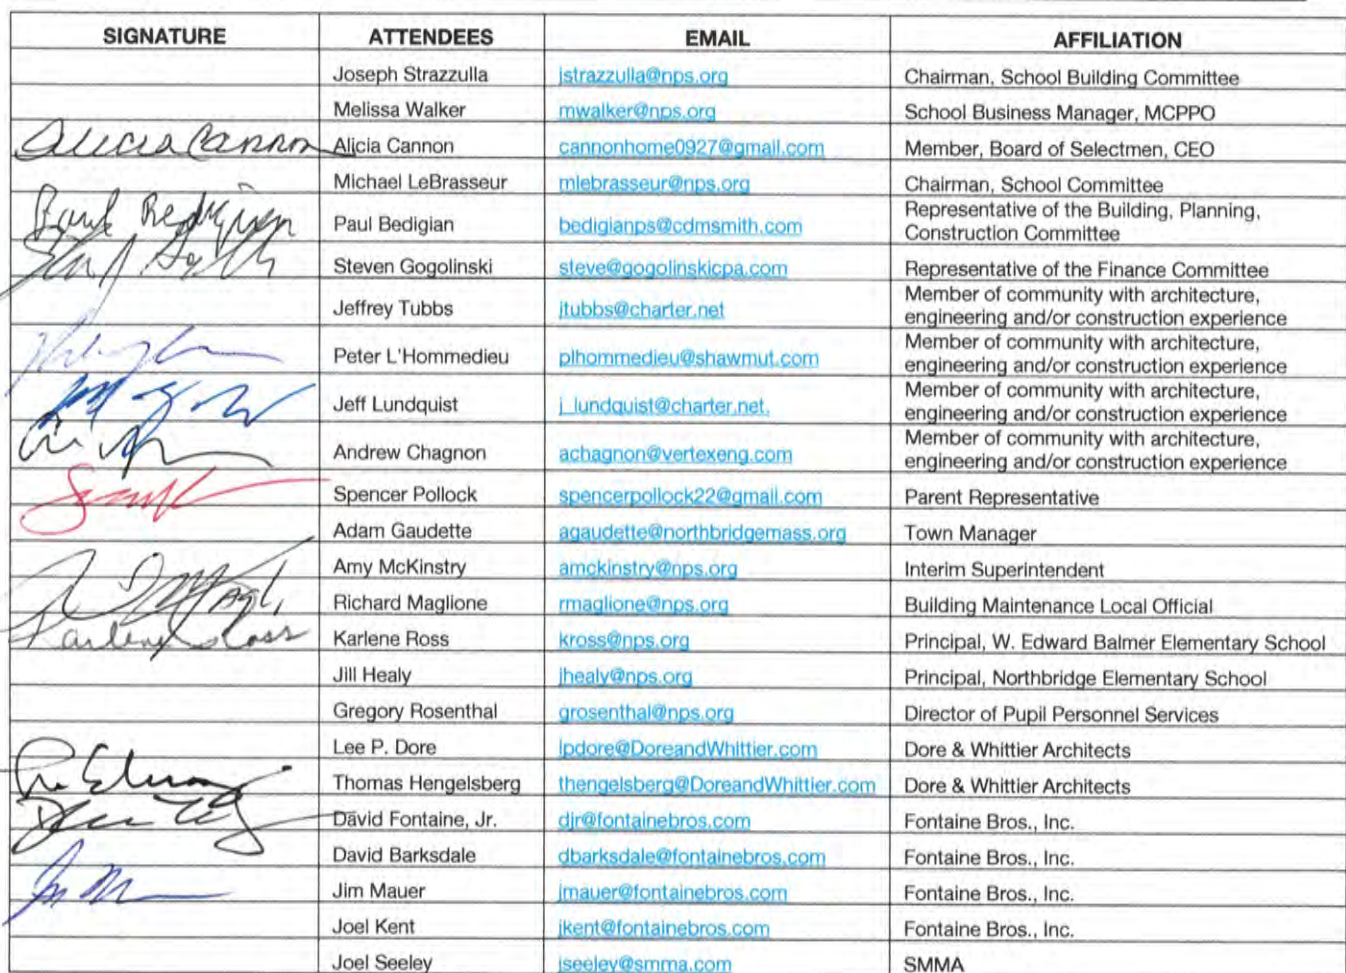 SIGNATURE ATTENDEES EMAIL AFFILIATION
Joseph Strazzulla jstrazzulla@nps.org Chairman, School Building Committee
Melissa Walker mwalker@nps.org School Business Manager, MCPPO
Alicia Cannon Alicia Cannon cannonhome0927@gmail.com Member, Board of Selectmen, CEO
Michael LeBrasseur mlebrasseur@nps.org Chairman, School Committee
Paul Bedigian Paul Bedigian bedigianps@cdmsmith.com Representative of the Building, Planning,
Construction Committee
Steven Gogolinski steve@gogolinskicpa.com Representative of the Finance Committee
Jeffrey Tubbs jtubbs@charter.net Member of community with architecture,
engineering and/or construction experience
Peter L'Hommedieu plhommedieu@shawmut.com Member of community with architecture,
engineering and/or construction experience
Jeff Lundquist j_lundquist@charter.net, Member of community with architecture,
engineering and/or construction experience
Andrew Chagnon achagnon@vertexeng.com Member of community with architecture,
engineering and/or construction experience
Spencer Pollock spencerpollock22@gmail.com Parent Representative
Adam Gaudette agaudette@northbridgemass.org Town Manager
Amy McKinstry amckinstry@nps.org Interim Superintendent
Richard Maglione rmaglione@nps.org Building Maintenance Local Official
Karlene Ross Karlene Ross kross@nps.org Principal, W. Edward Balmer Elementary School
Jill Healy jhealy@nps.org Principal, Northbridge Elementary School
Gregory Rosenthal grosenthal@nps.org Director of Pupil Personnel Services
Lee P. Dore lpdore@DoreandWhittier.com Dore & Whittier Architects
Thomas Hengelsberg thengelsberg@DoreandWhittier.com Dore & Whittier Architects
David Fontaine, Jr. djr@fontainebros.com Fontaine Bros., Inc.
David Barksdale dbarksdale@fontainebros.com Fontaine Bros., Inc.
Jim Mauer jmauer@fontainebros.com Fontaine Bros., Inc.
Joel Kent jkent@fontainebros.com Fontaine Bros., Inc.
Joel Seeley jseeley@smma.com SMMA